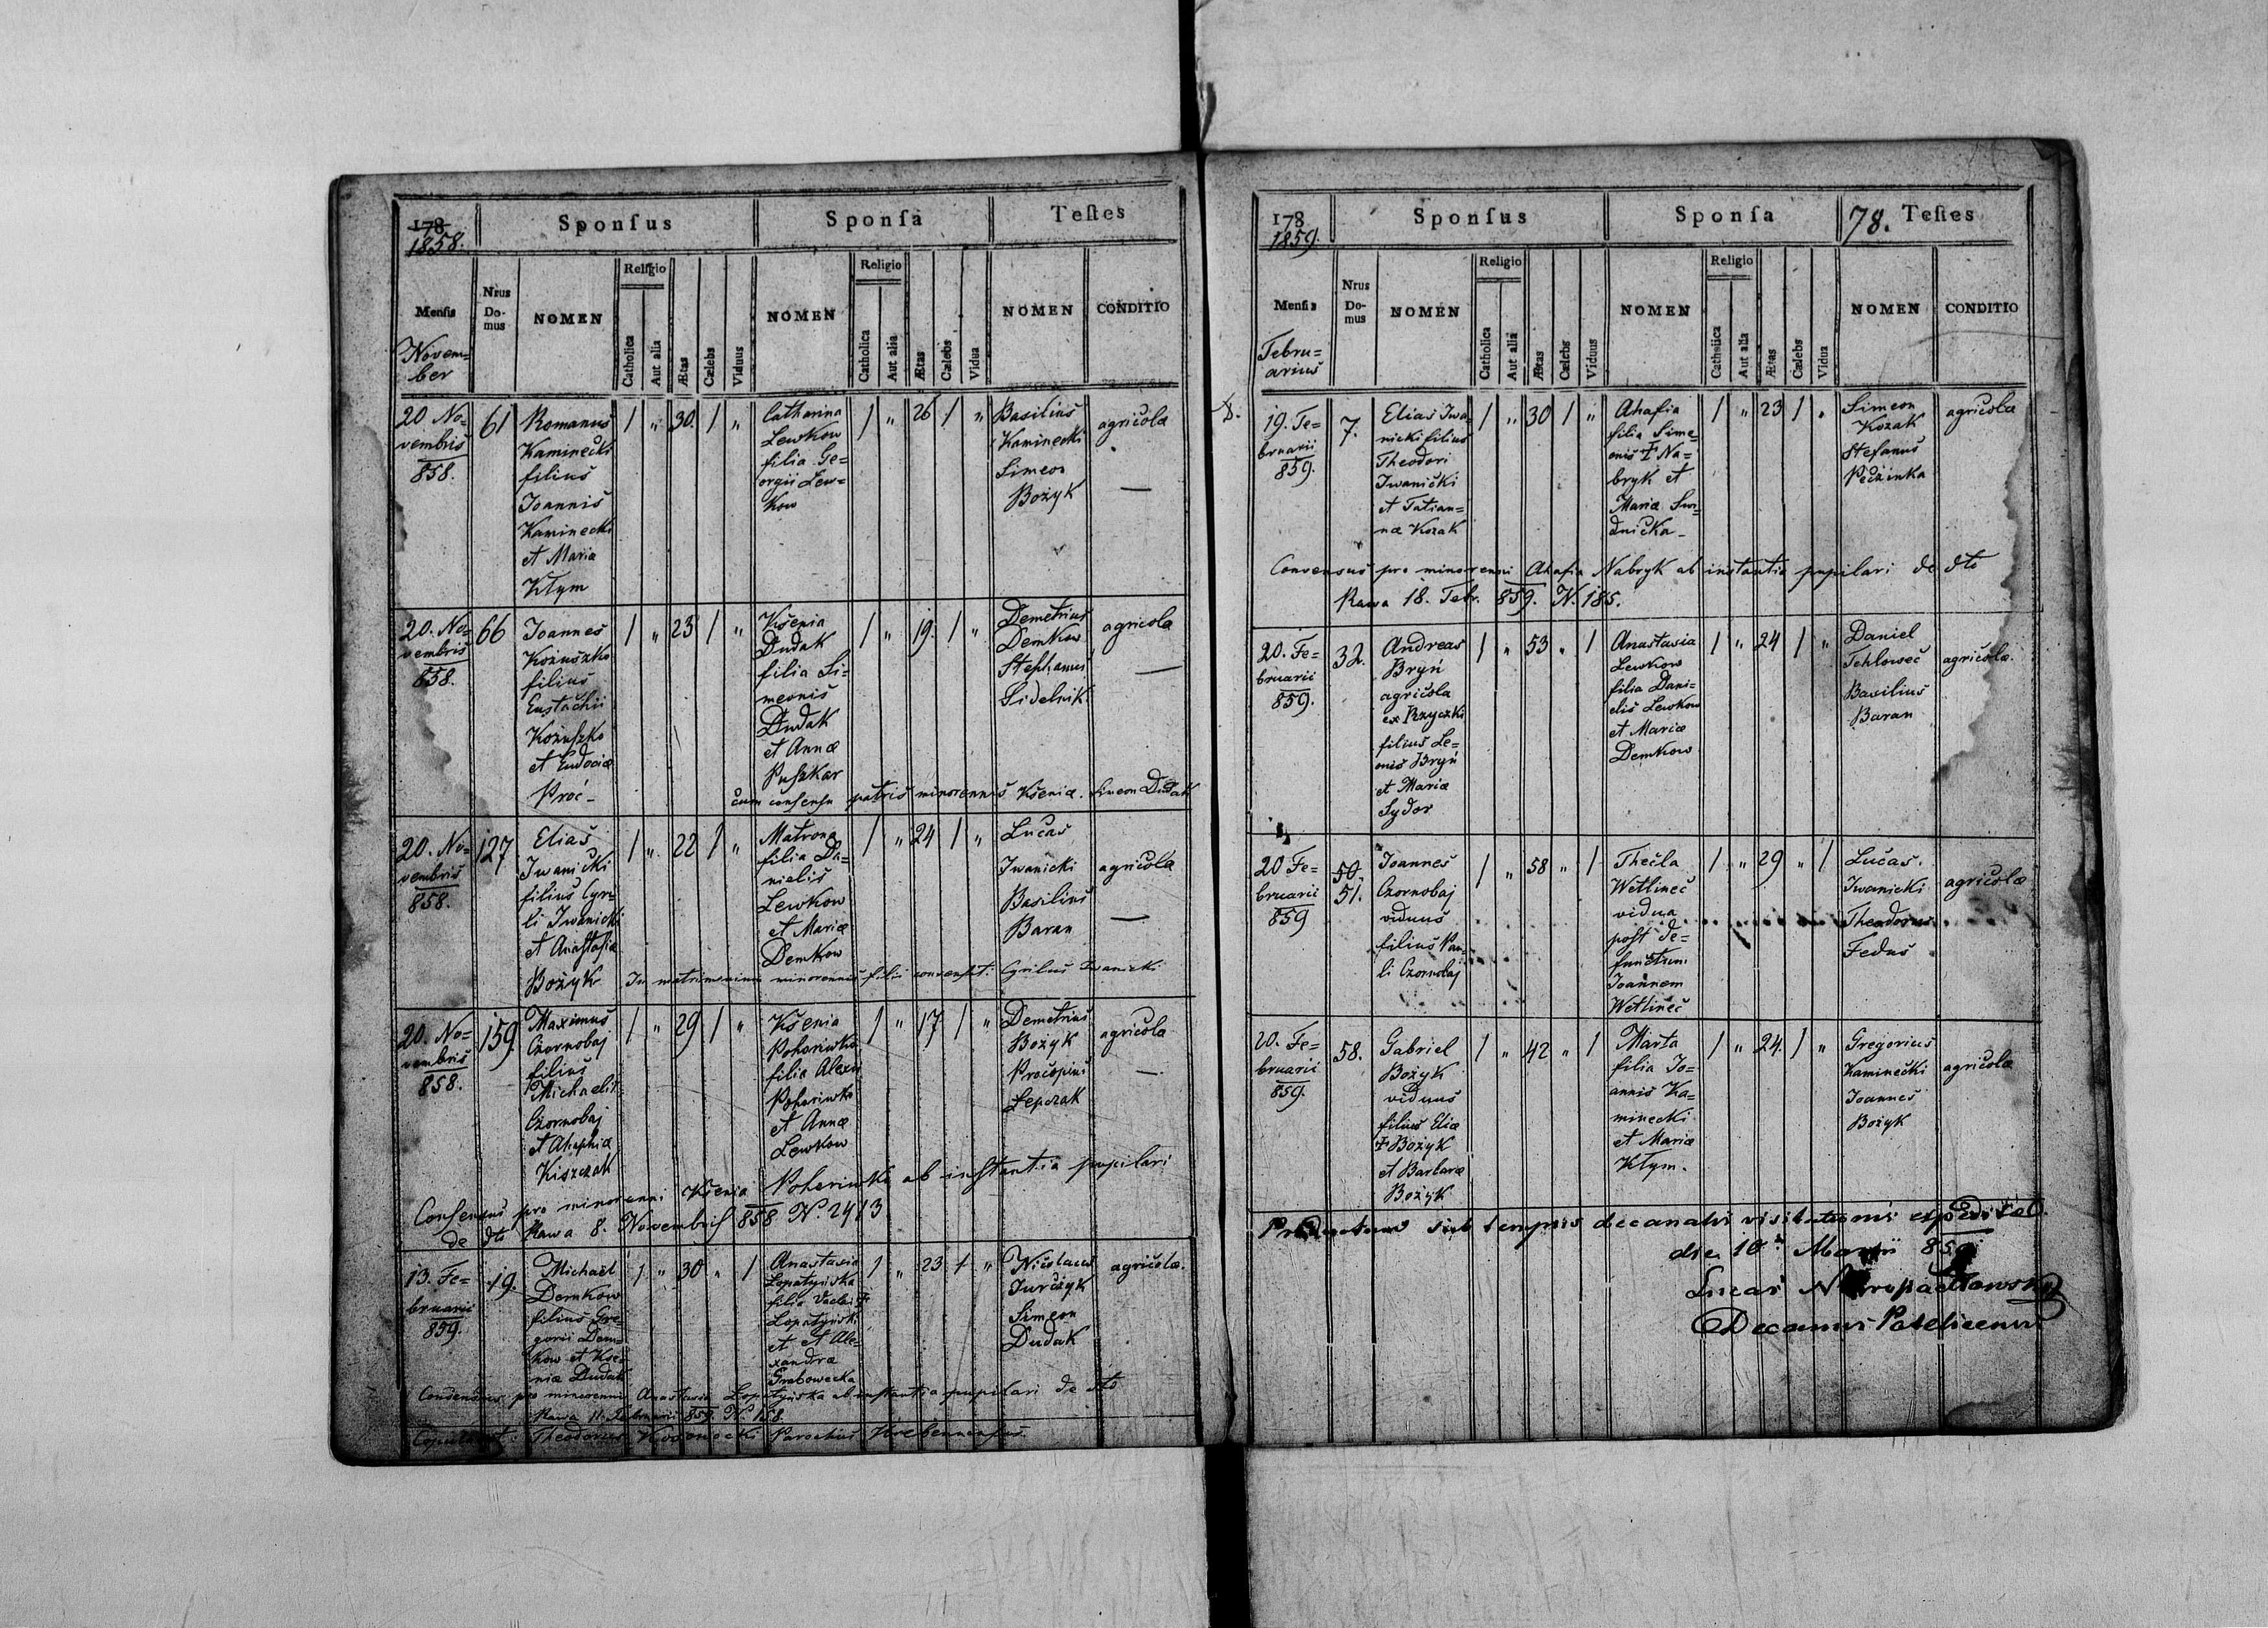 178
1858.
Sponsus
Sponsa
Testes
Mensis
Nrus Do-mus
NOMEN
Religio
Catholica
Aut alia
Ætas
Cælebs
Viduus
NOMEN
Religio
Catholica
Aut alia
Ætas
Cælebs
Vidua
NOMEN
CONDITIO
Novem=
ber
20 No=
vembris
858.
61
Romanus
Kaminecki
filius
Joannis
Kaminecki
et Maria
Kłym
1 " 30. 1 "
Catharina
Lewkow
filia Ge=
orgii Lew=
kow
1 " 26 1 "
Basilius
Kaminecki
Simeon
Bożyk
agricola
—
20. No=
vembris
858.
66
Joannes
Kożuszko
filius
Eustachii
Kożuszko
et Eudociæ
Proć -
1 " 23 1 "
Kśenia
Dudak
filia Si=
meonis
Dudak
et Annæ
Puszkar
1 " 19. 1 "
Demetrius
Demkow
Stephanus
Sidelnik
agricola
—
cum consensu patris minorennis Kseniæ. Simeon Dudak
20. No=
vembris
858.
127
Elias
Iwanicki
filius Cyri=
li Iwanicki
et Anastasiæ
Bożyk
1 " 22 1 "
Matrona
filia Da=
nielis
Lewkow
et Mariæ
Demkow
1 " 24 1 "
Lucas
Iwanicki
Basilius
Baran
agricola
—
In matrimonium minorennis filii consensit: Cyrilus Iwanicki
20. No=
vembris
858.
159.
Maximus
Czornobaj
filius
Michaelis
Czornobaj
et Ahaphiæ
Kiszczak
1 " 29 1 "
Kśenia
Pohoriwka
filia Alexii
Pohoriwka
et Annæ
Lewkow
1 " 17 1 "
Demetrius
Bożyk
Procopius
Lepczak
agricola
—
Consensus pro minorenni Ksenia Pohoriwka ab instantia pupilari
de dto Rawa 8. Novembris 858 N. 2413
13. Fe=
bruarii
859.
19.
Michaël
Demkow
filius Gre
gorii Dem=
kow et Kse=
niæ Dudak
1 " 30 " 1
Anastasia
Lopatyńska
filia
Lopatyński
et et Ale=
xandræ
Grabowecka
1 " 23 1 "
Nicolaus
Jurczyk
Simeon
Dudak
agricolæ.
Consensus pro minorenni Anastasia Lopatyńska ab instantia pupilari de dto
Rawa 11. Februarii 859. N. 158.
Theodorus Parochus Hrebennensis
178
1859.
Sponsus
Sponsa
78. Testes
Mensis
Nrus Do-mus
NOMEN
Religio
Catholica
Aut alia
Ætas
Cælebs
Viduus
NOMEN
Religio
Catholica
Aut alia
Ætas
Cælebs
Vidua
NOMEN
CONDITIO
Febru=
arius
19. Fe=
bruarii
859.
7.
Elias Iwa=
nicki filius
Theodori
Iwanicki
et Tatian=
næ Kozak
1 " 30 1 "
Ahafia
filia Sime=
onis † Na=
bryk et
Mariæ Swi=
dnicka -
1 " 23 1 "
Simeon
Kozak
Stefanus
Peczinka
agricolæ
Consensus pro minorenni Ahafia Nabryk ab instantia pupilari de dto
Rawa 18. Febr. 859. N. 185.
20. Fe=
bruarii
859.
32.
Andreas
Bryń
agricola
ex Rzyczki
filius Le=
onis Bryń
et Mariæ
Sydor
1 " 53 " 1
Anastasia
Lewkow
filia Dani=
elis Lewkow
et Mariæ
Demkow
1 " 24 1 "
Daniel
Tehlowec
Basilius
Baran
agricolæ.
20 Fe=
bruarii
859
50.
51.
Joannes
Czornobaj
viduus
filius Pau=
li Czornobaj
1 " 58 " 1
Thecla
Wetlinec
vidua
post de=
functum
Joannem
Wetlinec
1 " 29 " 1
Lucas
Iwanicki
Theodorus
Fedus
agricolæ
20. Fe=
bruarii
859.
58.
Gabriel
Bożyk
viduus
filius Eliæ
† Bożyk
et Barbaræ
Bożyk
1 " 42 " 1
Marta
filia Jo=
annis Ka=
minecki
et Mariæ
Kłym.
1 " 24. 1 "
Gregorius
Kaminecki
Joannes
Bożyk
agricolæ
Productum sub tempus decanalis visitationis
die 10ª Martii 859
Lucas
Decanus Potelicensis